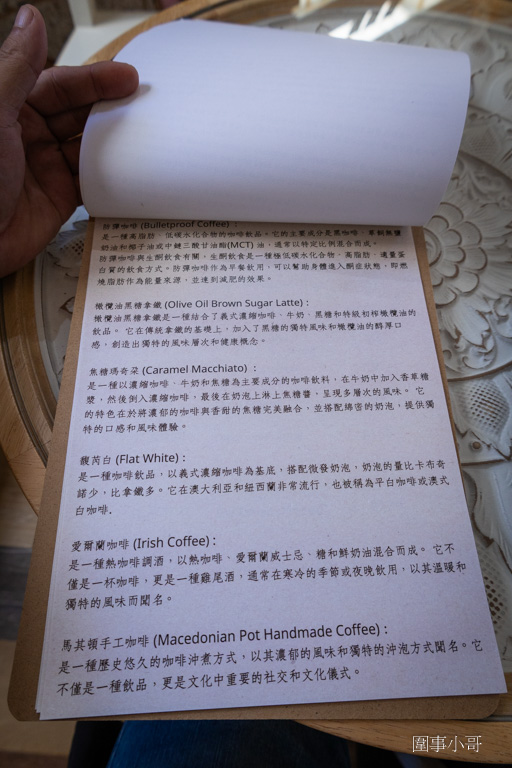 防彈咖啡 (Bulletproof Coffee) :
是一種高脂肪、低碳水化合物的咖啡飲品。它的主要成分是黑咖啡、草飼無鹽
奶油和椰子油或中鏈三酸甘油酯(MCT) 油，通常以特定比例混合而成。
防彈咖啡與生酮飲食有關，生酮飲食是一種極低碳水化合物、高脂肪、適量蛋
白質的飲食方式。防彈咖啡作為早餐飲用，可以幫助身體進入酮症狀態，即燃
燒脂肪作為能量來源，並達到減肥的效果。
橄欖油黑糖拿鐵 (Olive Oil Brown Sugar Latte) :
橄欖油黑糖拿鐵是一種結合了義式濃縮咖啡、牛奶、黑糖和特級初榨橄欖油的
飲品。 它在傳統拿鐵的基礎上，加入了黑糖的獨特風味和橄欖油的醇厚口
感，創造出獨特的風味層次和健康概念。
焦糖瑪奇朵 (Caramel Macchiato) :
是一種以濃縮咖啡、牛奶和焦糖為主要成分的咖啡飲料，在牛奶中加入香草糖
漿，然後倒入濃縮咖啡，最後在奶泡上淋上焦糖醬，呈現多層次的風味。 它
的特色在於將濃郁的咖啡與香甜的焦糖完美融合，並搭配綿密的奶泡，提供獨
特的口感和風味體驗。
馥芮白 (Flat White) :
是一種咖啡飲品，以義式濃縮咖啡為基底，搭配微發奶泡，奶泡的量比卡布奇
諾少，比拿鐵多。它在澳大利亞和紐西蘭非常流行，也被稱為平白咖啡或澳式
白咖啡.
愛爾蘭咖啡 (Irish Coffee) :
是一種熱咖啡調酒，以熱咖啡、愛爾蘭威士忌、糖和鮮奶油混合而成。 它不
僅是一杯咖啡，更是一種雞尾酒，通常在寒冷的季節或夜晚飲用，以其溫暖和
獨特的風味而聞名。
馬其頓手工咖啡 (Macedonian Pot Handmade Coffee) :
是一種歷史悠久的咖啡沖煮方式，以其濃郁的風味和獨特的沖泡方式聞名。它
不僅是一種飲品，更是文化中重要的社交和文化儀式。
圍事小哥